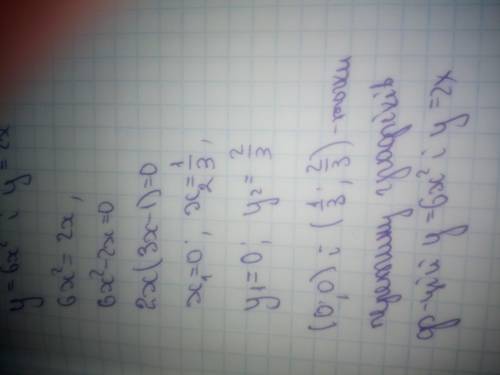 y = 6x² i y = 2x
6x² = 2x,
6x² - 2x = 0
2x(3x - 1) = 0
x₁ = 0; x₂ = 1/3,
y₁ = 0; y₂ = 2/3
(0; 0) i (1/3; 2/3) - точки
перетину графіків
ф-цій y = 6x² i y = 2x